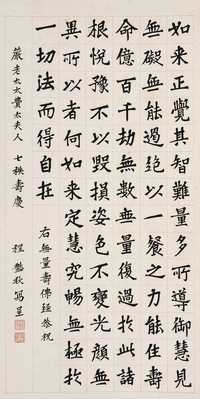 如来正覺其智難量多所導御慧見
無礙無能遏絶以一餐之力能住壽
命億百千劫無數無量復過於此諸
根悅豫不以毀損姿色不變光顏無
異所以者何如来定慧究暢無極於
一切法而得自在
右無量壽佛經恭祝
嚴老太太費太夫人 七秩壽慶
程艷秋寫呈